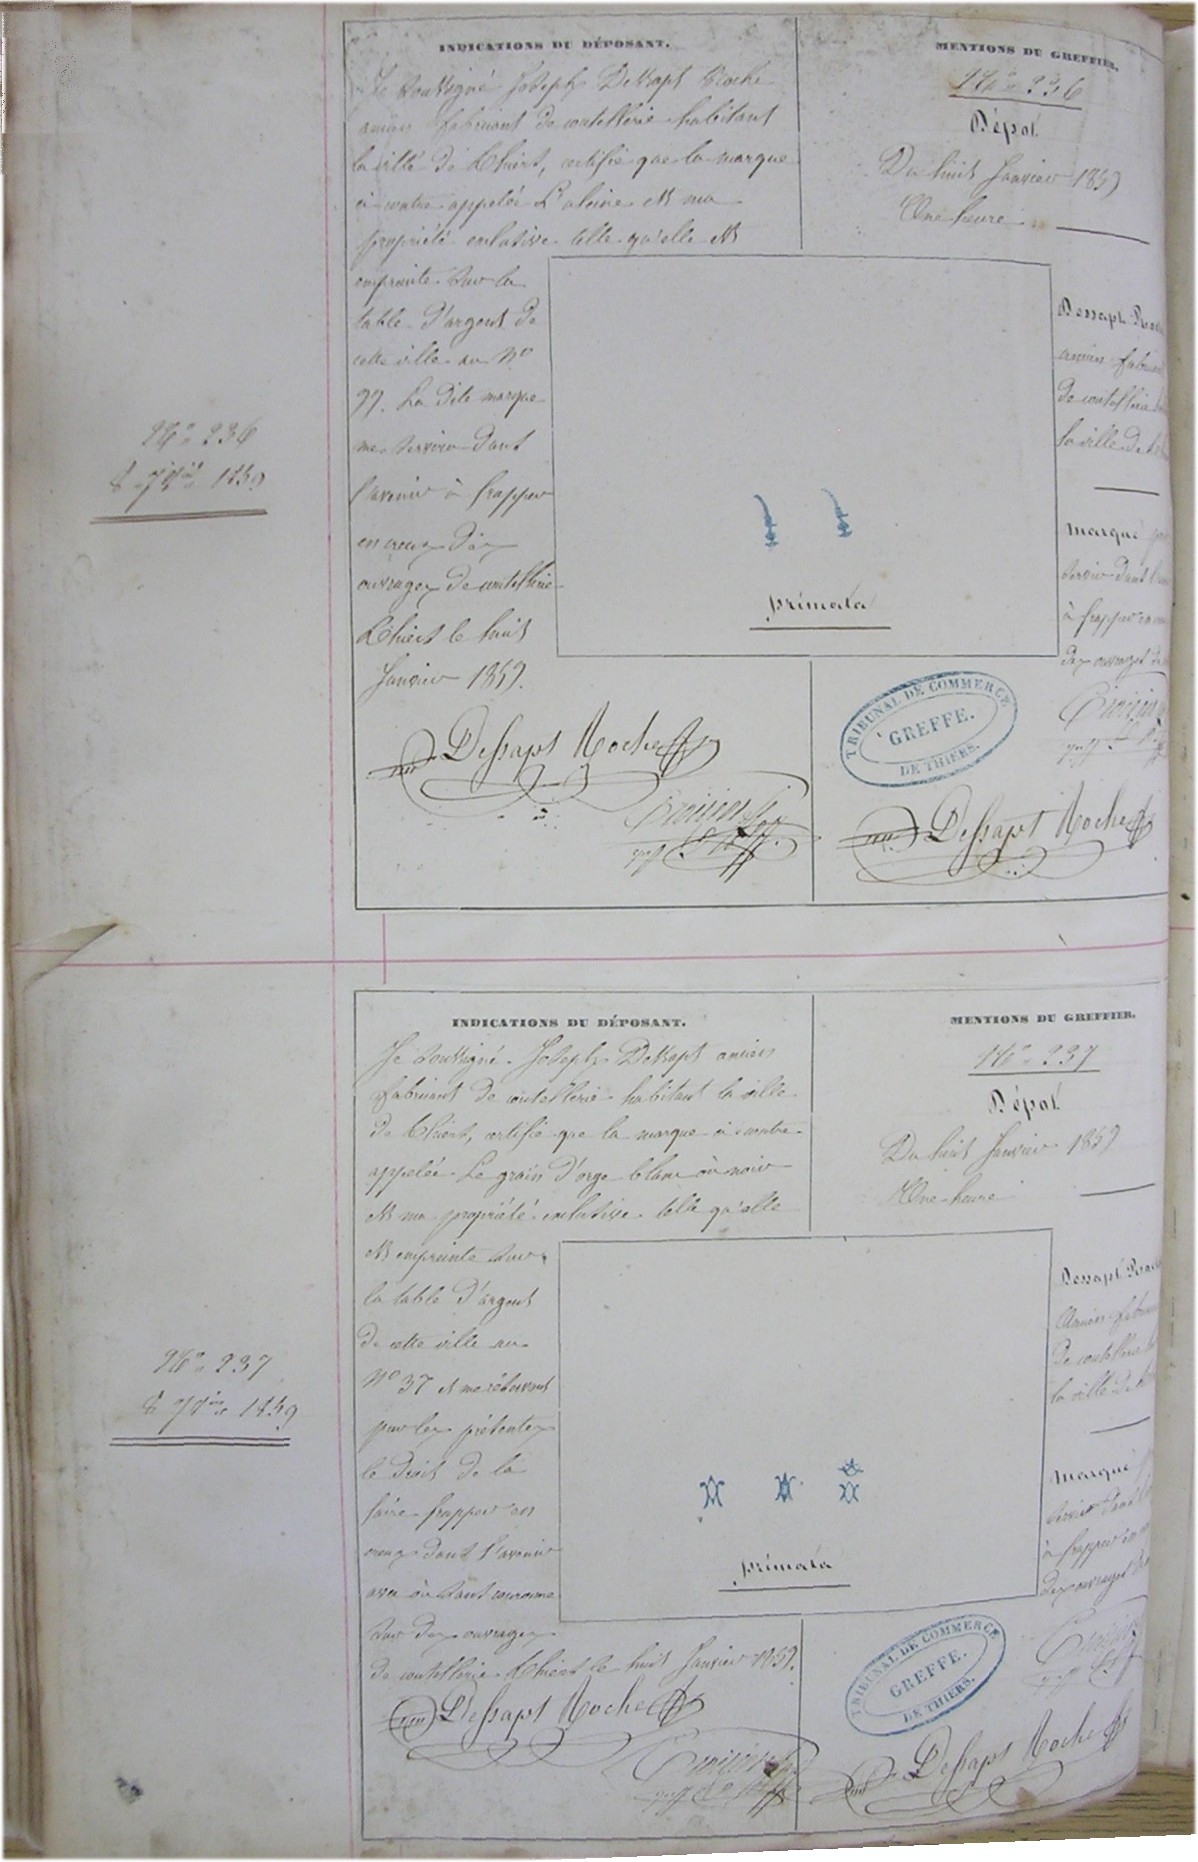 INDICATIONS DU DÉPOSANT.
Je soussigné Joseph Dessapt Roche
ancien fabricant de coutellerie habitant
la ville de Thiers, certifie que la marque
ci contre appelée L'aleine est ma
propriété exclusive telle qu'elle est
empreinte sur la
table d'argent de
cette ville au No
99. La dite marque
me servira dans
l'avenir à frapper
en creux des
ouvrages de coutellerie
Thiers le huit
Janvier 1859.
Dessapt Roche
MENTIONS DU GREFFIER.
No 236
Dépot
Du huit Janvier 1859
Une heure
Dessapt Roche
ancien fabricant
de coutellerie
la ville de
marque
servir dans
à frapper en
des ouvrages de
primata
TRIBUNAL DE COMMERCE
GREFFE.
DE THIERS.
Dessapt Roche
No 236
8 Jer 1859
INDICATIONS DU DÉPOSANT.
Je soussigné Joseph Dessapt ancien
fabricant de coutellerie habitant la ville
de Thiers, certifie que la marque ci contre
appelée Le grain d'orge blanc ou noir
est ma propriété exclusive telle qu'elle
est empreinte sur
la table d'argent
de cette ville au
No 37 et me réservant
par les présentes
le droit de la
faire frapper en
creux dans l'avenir
avec ou sans couronne
sur des ouvrages
de coutellerie Thiers le huit Janvier 1859.
Dessapt Roche
MENTIONS DU GREFFIER.
No 237
Dépot
Du huit Janvier 1859
Une heure
Dessapt Roche
Ancien fabricant
de coutellerie
la ville de
marque
servir dans
à frapper en
des ouvrages
primata
TRIBUNAL DE COMMERCE
GREFFE.
DE THIERS.
Dessapt Roche
No 237
8 Jer 1859